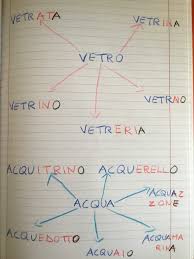 VETRATA
VETRINA
VETRO
VETRINO
VETRAIO
VETRERIA
ACQUITRINO
ACQUERELLO
ACQUAZ
ZONE
ACQUA
ACQUEDOTTO
ACQUAIO
ACQUAMA
RINA